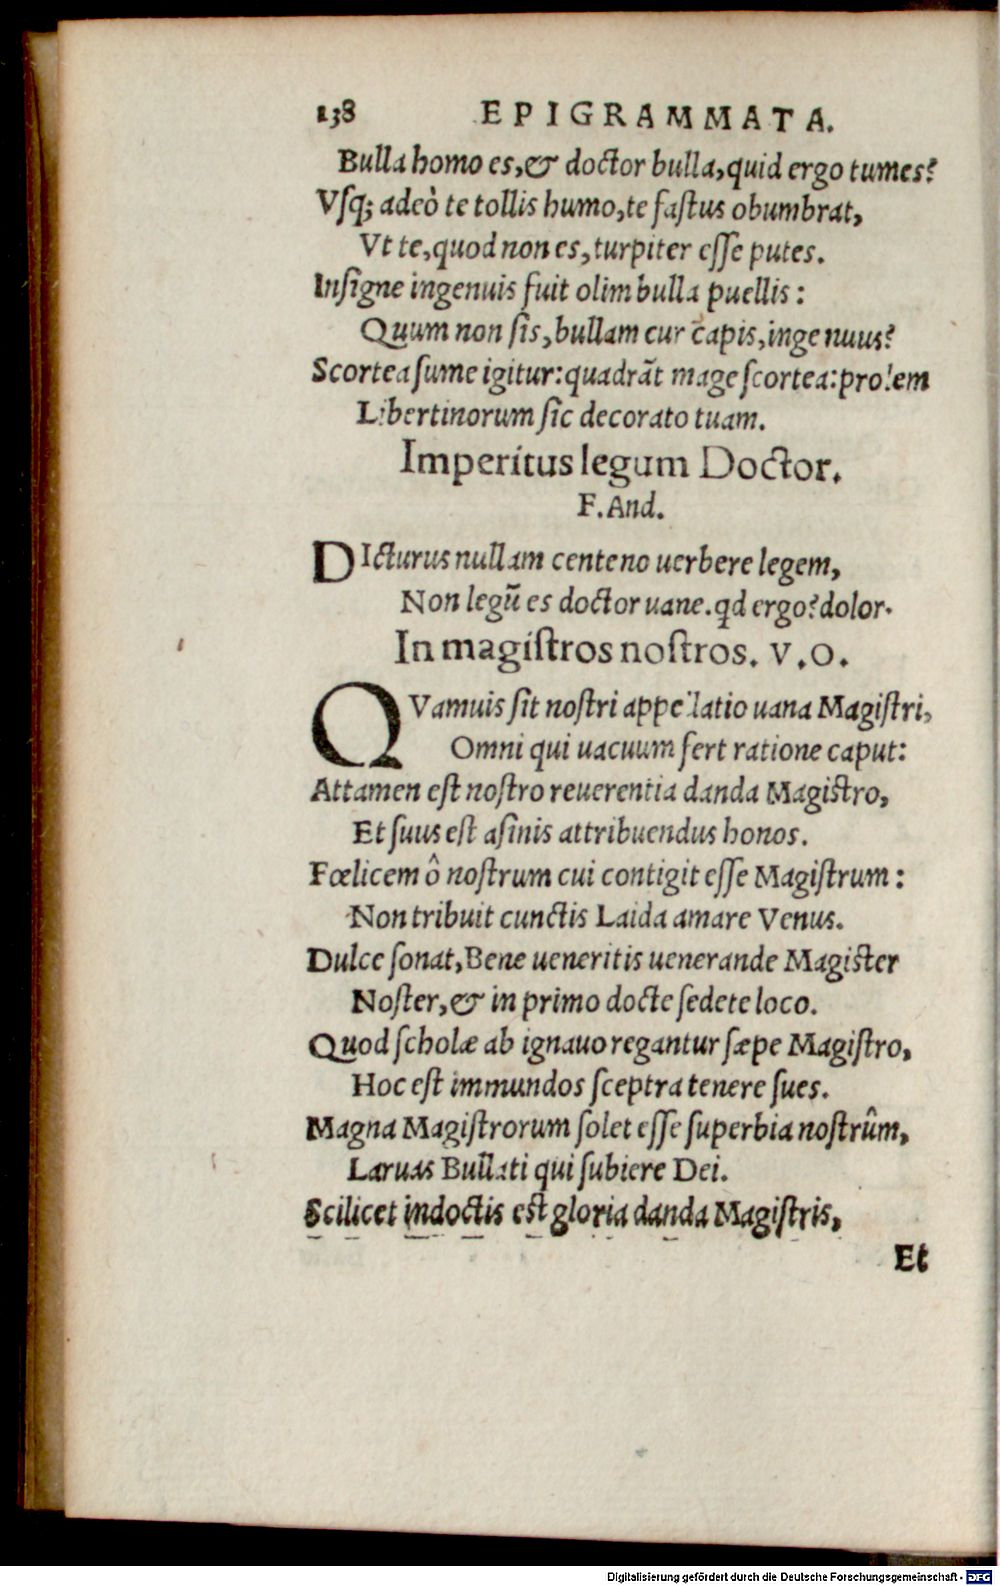 138 EPIGRAMMATA.
Bulla homo es, & doctor bulla, quid ergo tumes?
Vſq; adeò te tollis humo, te faſtus obumbrat,
Vt te, quod non es, turpiter eſſe putes.
Inſigne ingenuis fuit olim bulla puellis:
Quum non ſis, bullam cur capis, ingenuus?
Scortea ſume igitur: quadrãt mage ſcortea: prolem
Libertinorum ſic decorato tuam.
Imperitus legum Doctor.
F. And.
DIcturus nullam centeno uerbere legem,
Non legũ es doctor uane. qd ergo? dolor.
In magiſtros noſtros. V.O.
QVamuis ſit noſtri appellatio uana Magiſtri,
Omni qui uacuum fert ratione caput:
Attamen eſt noſtro reuerentia danda Magiſtro,
Et ſuus eſt aſinis attribuendus honos.
Fœlicem ô noſtrum cui contigit eſſe Magiſtrum:
Non tribuit cunctis Laida amare Venus.
Dulce ſonat, Bene ueneritis uenerande Magiſter
Noſter, & in primo docte ſedete loco.
Quod ſcholæ ab ignauo regantur ſæpe Magiſtro,
Hoc eſt immundos ſceptra tenere ſues.
Magna Magiſtrorum ſolet eſſe ſuperbia noſtrûm,
Laruas Bullati qui ſubiere Dei.
Scilicet indoctis eſt gloria danda Magiſtris,
Et
Digitalisierung gefördert durch die Deutsche Forschungsgemeinschaft - DFG